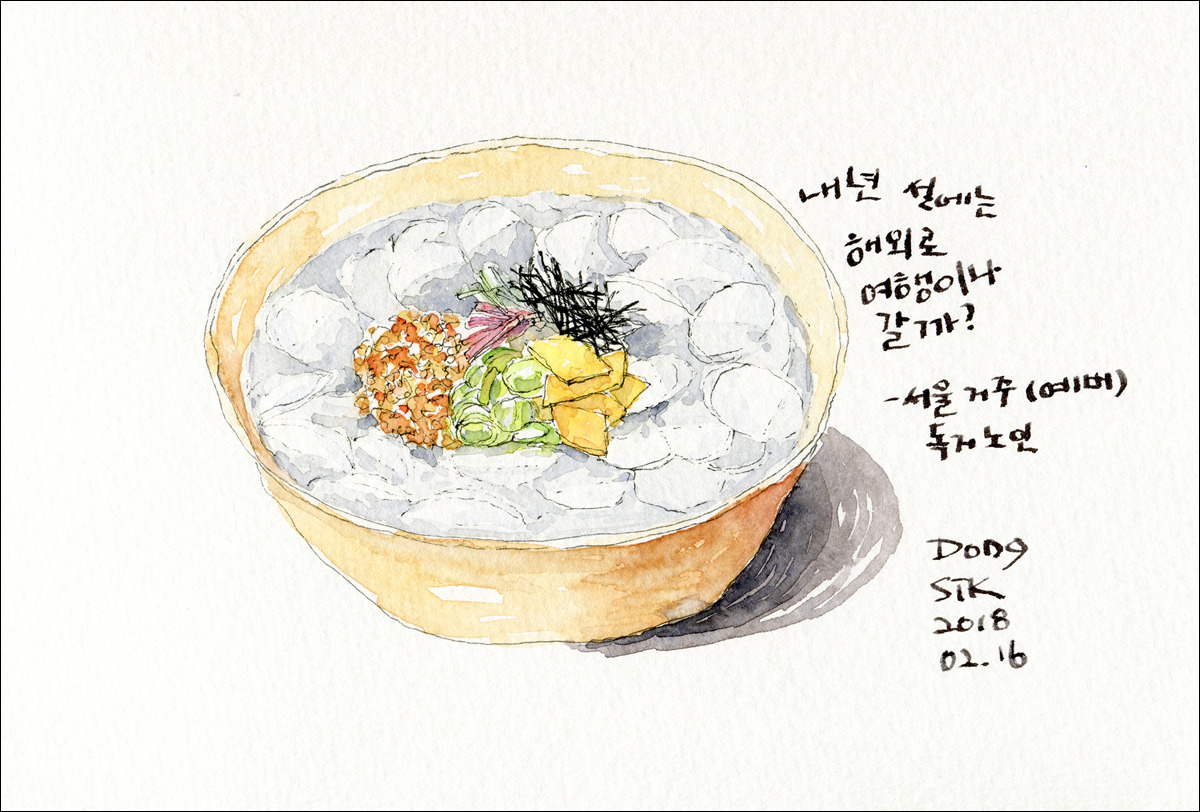 내년 설에는
해외로
여행이나
갈까?
-서울 거주 (예비)
독거노인
DONG
SIK
2018
02.16